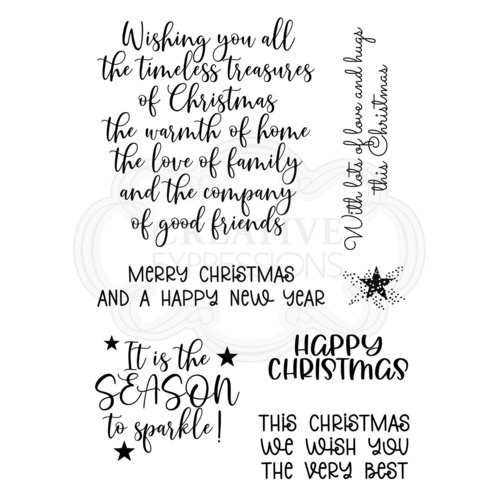 Wishing you all
the timeless treasures
of Christmas
the warmth of home
the love of family
and the company
of good friends
With lots of love and hugs
this Christmas
CREATIVE
EXPRESSIONS
MERRY CHRISTMAS
AND A HAPPY NEW YEAR
It is the
SEASON
to sparkle!
HAPPY
CHRISTMAS
THIS CHRISTMAS
WE WISH YOU
THE VERY BEST